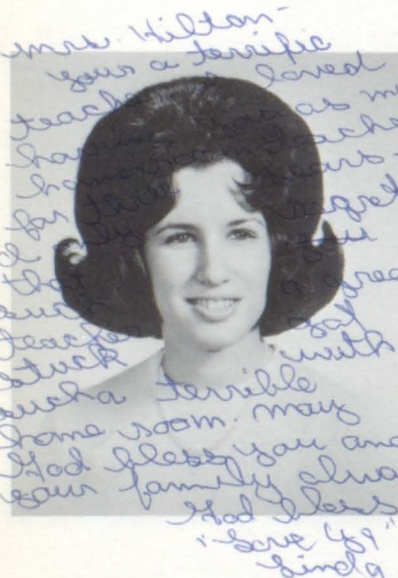 Mrs. Hilton-
your a terrific
teacher I loved
having you as my
homeroom teacher
for two years -
I only regret
that you
such a great
teacher got
stuck with
sucha terrible
home room, may
God bless you and
your family alwa
God bless
"Love Ya"
Linda